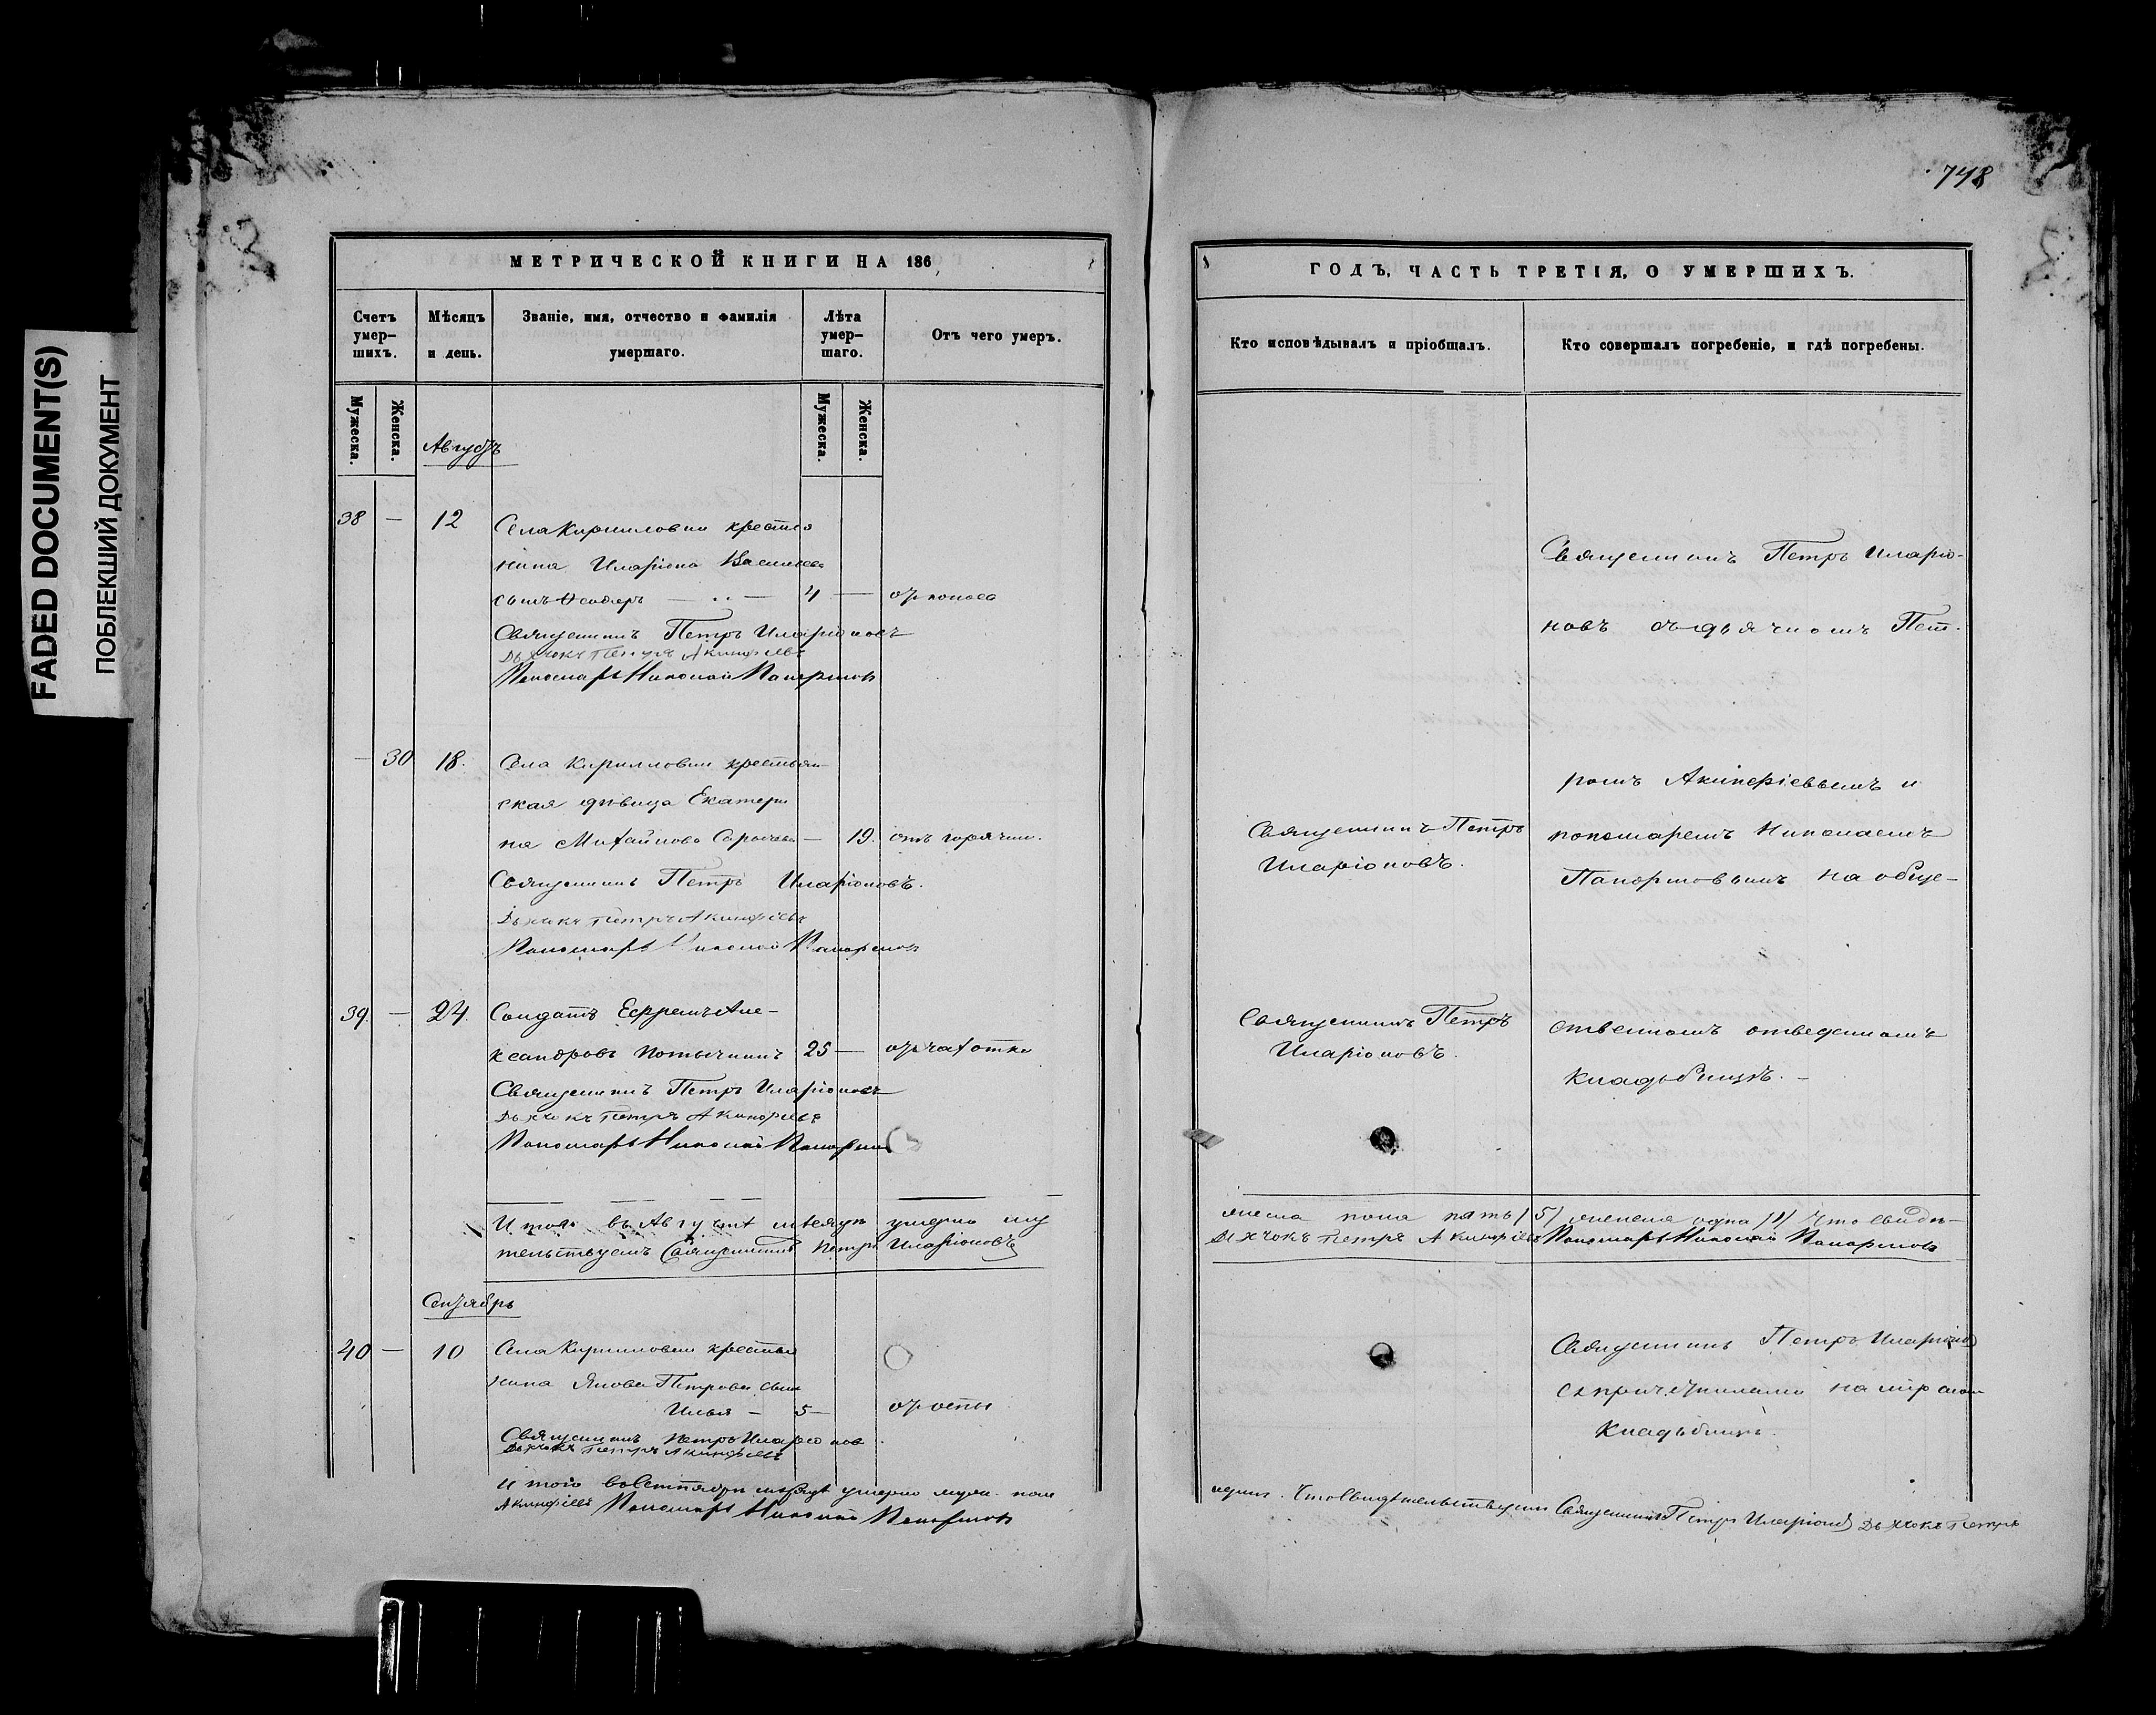 FADED DOCUMENT(S)
ПОБЛЕКШИЙ ДОКУМЕНТ
748
МЕТРИЧЕСКОЙ КНИГИ НА 186
Счетъ умер-шихъ.
Мѣсяцъ и день.
Званіе, имя, отчество и фамилія умершаго.
Лѣта умер-шаго.
Отъ чего умеръ.
Мужеска.
Женска.
Мужеска.
Женска.
Августъ
38 — 12 Села Кирилловки крестья
нина Иларіона Васильева
сынъ — 4 — отъ поноса
Священникъ Петръ Иларіоновъ
Дьячокъ Петръ Акинфіевъ
Пономарь Николай
— 30 18. Села Кирилловки крестьян-
ская дѣвица Екатери
на Михайлова — 19. отъ горячки.
Священникъ Петръ Иларіоновъ.
Дьячокъ Петръ Акинфіевъ
Пономарь Николай
39. — 24. Солдатъ Ефремъ Але-
ксандровъ 25 — отъ чахотки
Священникъ Петръ Иларіоновъ
Дьячокъ Петръ Акинфіевъ
Пономарь Николай
Итого въ Августѣ мѣсяцѣ умерло му
тельствуемъ Священникъ Петръ Иларіоновъ
Сентябрь
40 — 10 Села Кирилловки крестья
нина Якова Петрова сынъ
Илья — 5 — отъ оспы
Священникъ Петръ Иларіонов
Дьячокъ Петръ Акинфіевъ
Итого въ Сентябрѣ мѣсяцѣ умерло муж. пола
Акинфіевъ Пономарь Николай
ГОДЪ, ЧАСТЬ ТРЕТІЯ, О УМЕРШИХЪ.
Кто исповѣдывалъ и пріобщалъ.
Кто совершалъ погребеніе, и гдѣ погребены.
Священникъ Петръ Иларіо-
новъ съ дьячкомъ Пет-
ромъ Акинфіевымъ и
Священникъ Петръ
Иларіоновъ.
пономаремъ Николаемъ
на обще-
Священникъ Петръ
Иларіоновъ.
ственномъ отведенномъ
кладбищѣ. -
жеска пола пять /5/ женска одна /1/ Что свидѣ-
Дьячокъ Петръ Акинфіевъ Пономарь Николай
Священникъ Петръ Иларіоно
съ причетниками на
кладьбищѣ.
одинъ. Что свидѣтельствуемъ Священникъ Петръ Иларіонов Дьячокъ Петръ